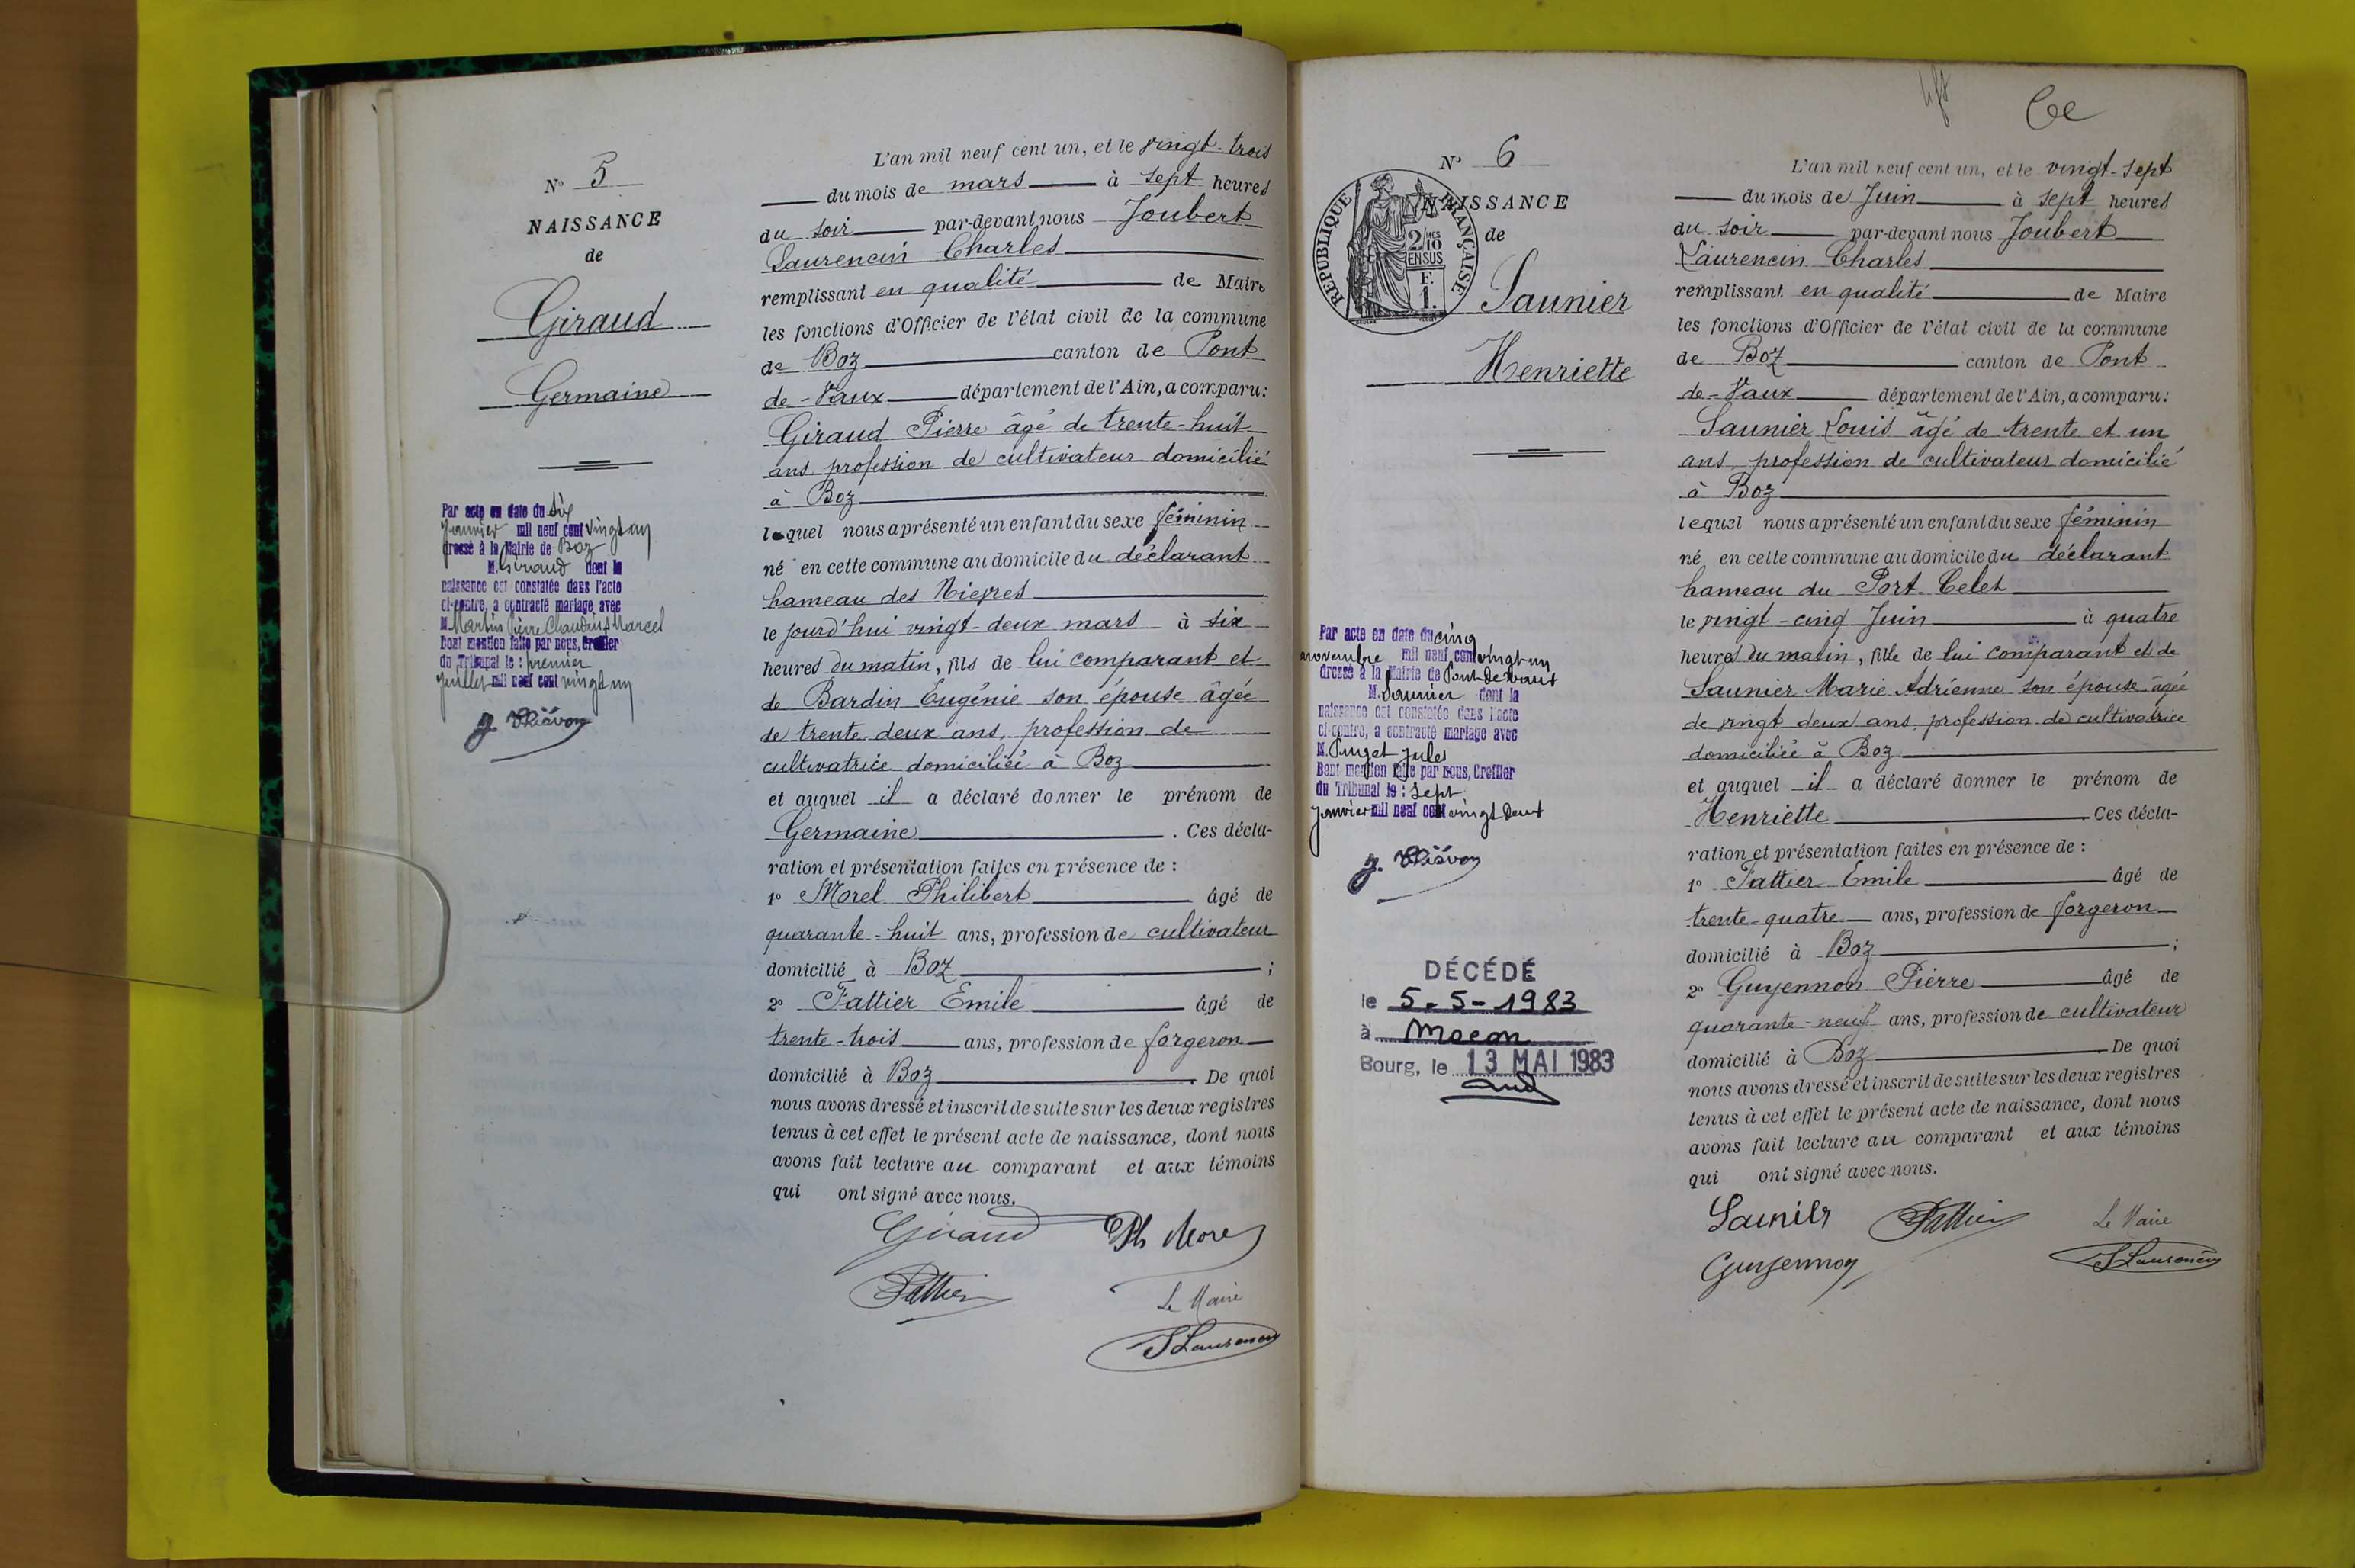 N° 5
NAISSANCE
de
Giraud
Germaine
Par acte en date du six
Janvier mil neuf cent vingt un
dressé à la Mairie de Boz
M. Giraud dont la
naissance est constatée dans l'acte
ci-contre, a contracté mariage avec
M. Martin Pierre Claudius Marcel
Dont mention faite par nous, Greffier
du Tribunal le : premier
Juillet mil neuf cent vingt un
L'an mil neuf cent un, et le vingt-trois
du mois de mars à sept heures
du soir par-devant nous Joubert
Laurencin Charles
remplissant en qualité de Maire
les fonctions d'Officier de l'état civil de la commune
de Boz canton de Pont
de-Vaux département de l'Ain, a comparu :
Giraud Pierre âgé de trente-huit
ans profession de cultivateur domicilié
à Boz
lequel nous a présenté un enfant du sexe féminin
né en cette commune au domicile du déclarant
hameau des
le jourd'hui vingt-deux mars à six
heures du matin, fils de lui comparant et
de Bardin Eugénie son épouse âgée
de trente deux ans, profession de
cultivatrice domiciliée à Boz
et auquel il a déclaré donner le prénom de
Germaine . Ces décla-
ration et présentation faites en présence de :
1° Morel Philibert âgé de
quarante-huit ans, profession de cultivateur
domicilié à Boz ;
2° Fattier Emile âgé de
trente-trois ans, profession de forgeron
domicilié à Boz . De quoi
nous avons dressé et inscrit de suite sur les deux registres
tenus à cet effet le présent acte de naissance, dont nous
avons fait lecture au comparant et aux témoins
qui ont signé avec nous.
Giraud Ph Morel
Fattier Le Maire
J Laurencin
6e
N° 6
NAISSANCE
de
REPUBLIQUE FRANÇAISE
2/MES
10
EN SUS
F.
1.
Saunier
Henriette
Par acte en date du cinq
novembre mil neuf cent vingt un
dressé à la Mairie de Pont De Vaux
M. Saunier dont la
naissance est constatée dans l'acte
ci-contre, a contracté mariage avec
M. Puget Jules
Dont mention faite par nous, Greffier
du Tribunal le : Sept
Janvier mil neuf cent vingt Deux
DÉCÉDÉ
le 5-5-1983
à Macon
Bourg, le 13 MAI 1983
L'an mil neuf cent un, et le vingt-sept
du mois de Juin à sept heures
du soir par-devant nous Joubert
Laurencin Charles
remplissant en qualité de Maire
les fonctions d'Officier de l'état civil de la commune
de Boz canton de Pont
de-Vaux département de l'Ain, a comparu :
Saunier Louis âgé de trente et un
ans profession de cultivateur domicilié
à Boz
lequel nous a présenté un enfant du sexe féminin
né en cette commune au domicile du déclarant
hameau du Port Celet
le vingt-cinq Juin à quatre
heures du matin, fille de lui comparant et de
Saunier Marie Adrienne son épouse âgée
de vingt deux ans, profession de cultivatrice
domiciliée à Boz
et auquel il a déclaré donner le prénom de
Henriette . Ces décla-
ration et présentation faites en présence de :
1° Fattier Emile âgé de
trente-quatre ans, profession de forgeron
domicilié à Boz ;
2° Guyennon Pierre âgé de
quarante-neuf ans, profession de cultivateur
domicilié à Boz . De quoi
nous avons dressé et inscrit de suite sur les deux registres
tenus à cet effet le présent acte de naissance, dont nous
avons fait lecture au comparant et aux témoins
qui ont signé avec nous.
Saunier Fattier Le Maire
Guyennon J Laurencin